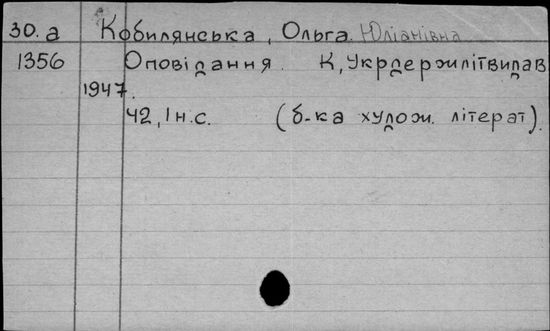 30.а Кобилянська, Ольга Юліанівна
1356 Оповідання. К, Укрдержлітвидав
1947.
42, 1 н.с. (б-ка худож. літерат).